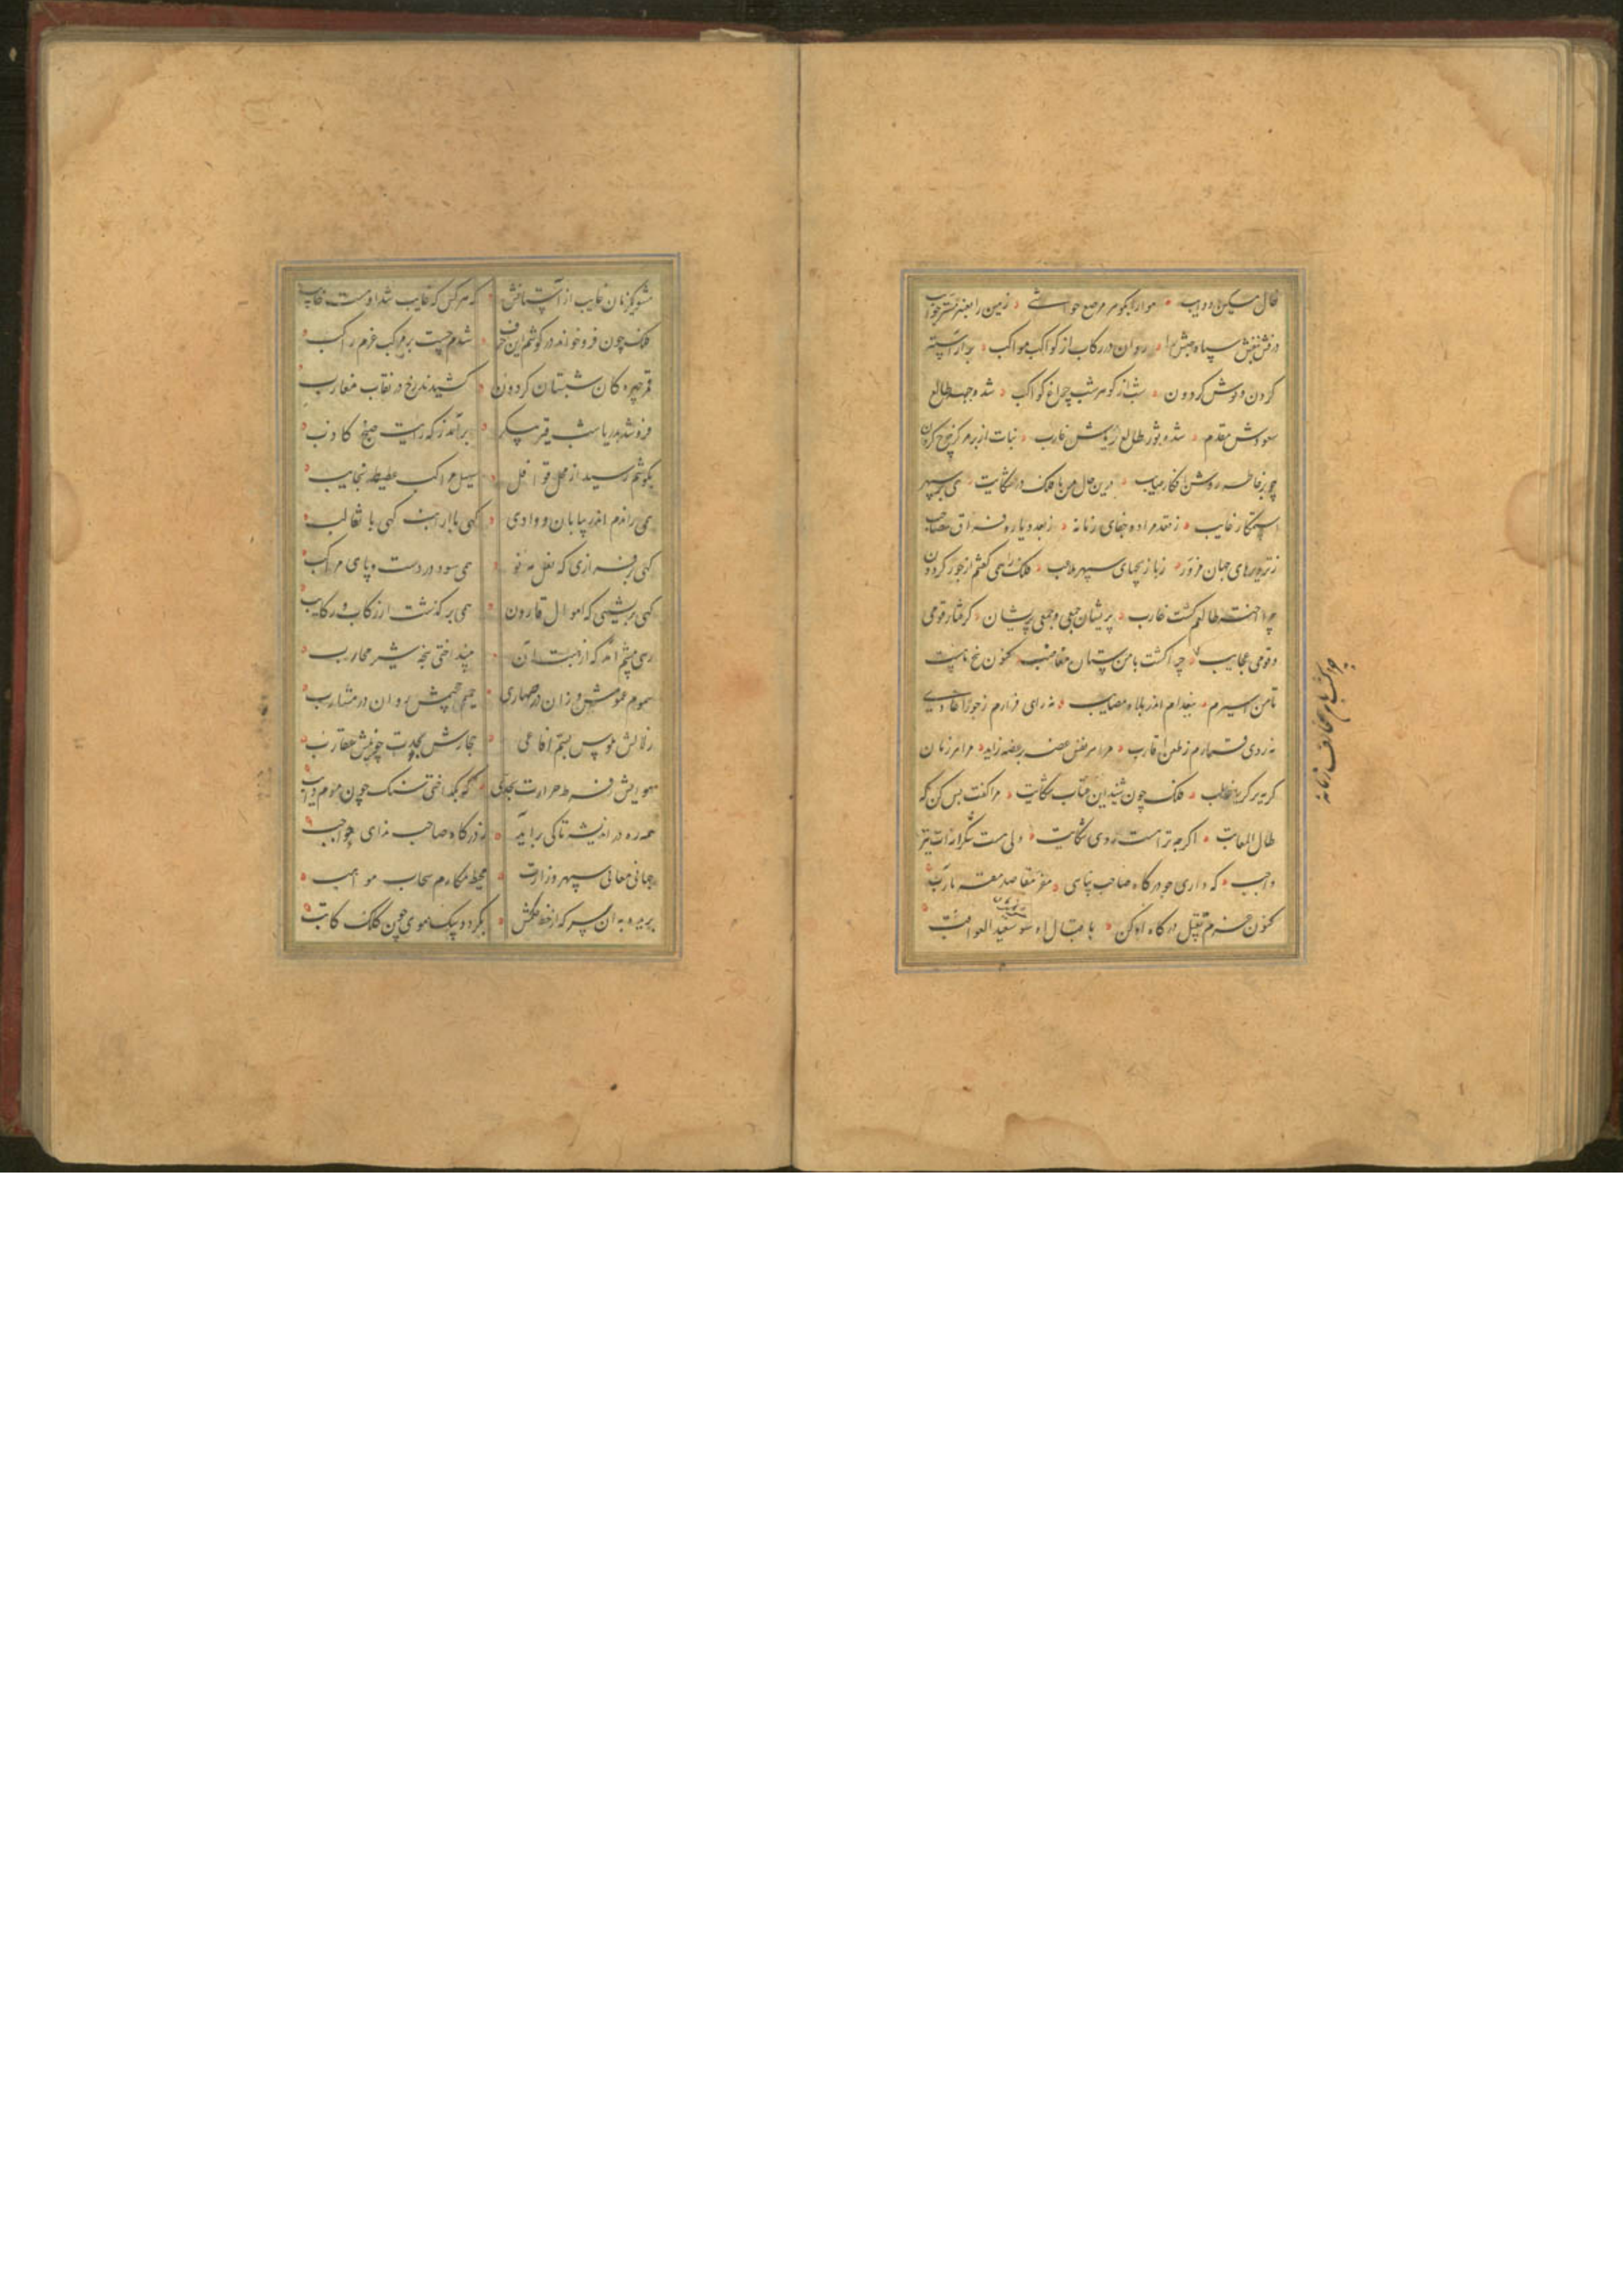 خال مسکین دو حاجب هوا را بکوهر مرصع حواشی زمین را بعنبر مستر جوانب
درفش بنفش سپاه حبش را روان در رکاب از کواکب مواکب برآراسته
کردن و کوش کردون شب از کوهر شب چراغ کواکب شده وجه طالع
سعودش مقدم شده نور طالع غارب نبات از بر مرکز چرخ کردان
چو بر خاطر روشن افکار صایب درین حال من با فلک در شکایت
ز نقد مراد و جفای زمانه ز بعد دیار و فراق صاحب
ز تزویرهای جهان مزور ز بازیچهای سپهر ملاعب فلک را همی کفتم از جور کردون
چرا اختر طالعم کشت غارب پریشان جمعی و جمعی پریشان کرفتار قومی
و قومی عجایب چرا کشت با من کنون
تا من اسیرم ببغدادم اندر بلا و مصایب نه رای فرارم ز جور اعادی
نه روی قرارم ز طعن اقارب مرا هر نفس غصه بر غصه زاید مرا هر زمان
کریه بر کریه غالب فلک چون شنید این عتاب و شکایت مرا کفت بس کن که
طال المعاتب اکرچه ترا هست روی شکایت ولی هست شکرانه ات نیز
واجب که داری چو درکاه صاحب پناهی مقر مقاصد مقر مآرب
کنون عزم تقبیل درکاه او کن باقبال او شو سعید العواقب
چرا کشت با من مخالف زمانه
مشو یکزمان غایب از آستانش که هر کس که غایب شد اوست خایب
فلک چون فرو خواند در کوشم این حرف شدم چست بر مرکب عزم راکب
قمر چهره کان شبستان کردون کشیدند رخ در نقاب مغارب
فرو شد بدریا شب قیر پیکر برآمد ز که رایت صبح کاذب
بکوشم رسید از محل قوافل صهیل مراکب عطیط نجایب
همی راندم اندر بیابان و وادی کهی با ارانب کهی با ثعالب
کهی بر فرازی که نعل مه نو همی سود در دست و پای مراکب
کهی بر نشیبی که اموال قارون همی بر کذشت از رکاب رکایب
رهی پیشم آمد که از هیبت آن بینداختی پنجه شیر محارب
سموم عمومش وزان در صحاری حمیم جحیمش روان در مشارب
زلالش ملوس بسم افاعی حجارش بحدت چو نیش عقارب
هوایش ز فرط حرارت بحدی که بکداختی سنک چون موم ذایب
همه ره در اندیشه تا کی برآید ز درکاه صاحب ندای مواجب
جهانی معالی سپهر وزارت محیط مکارم سحاب مواهب
بریده به آن سر که از خط حکمش بکردد بیک موی چون کلک کاتب